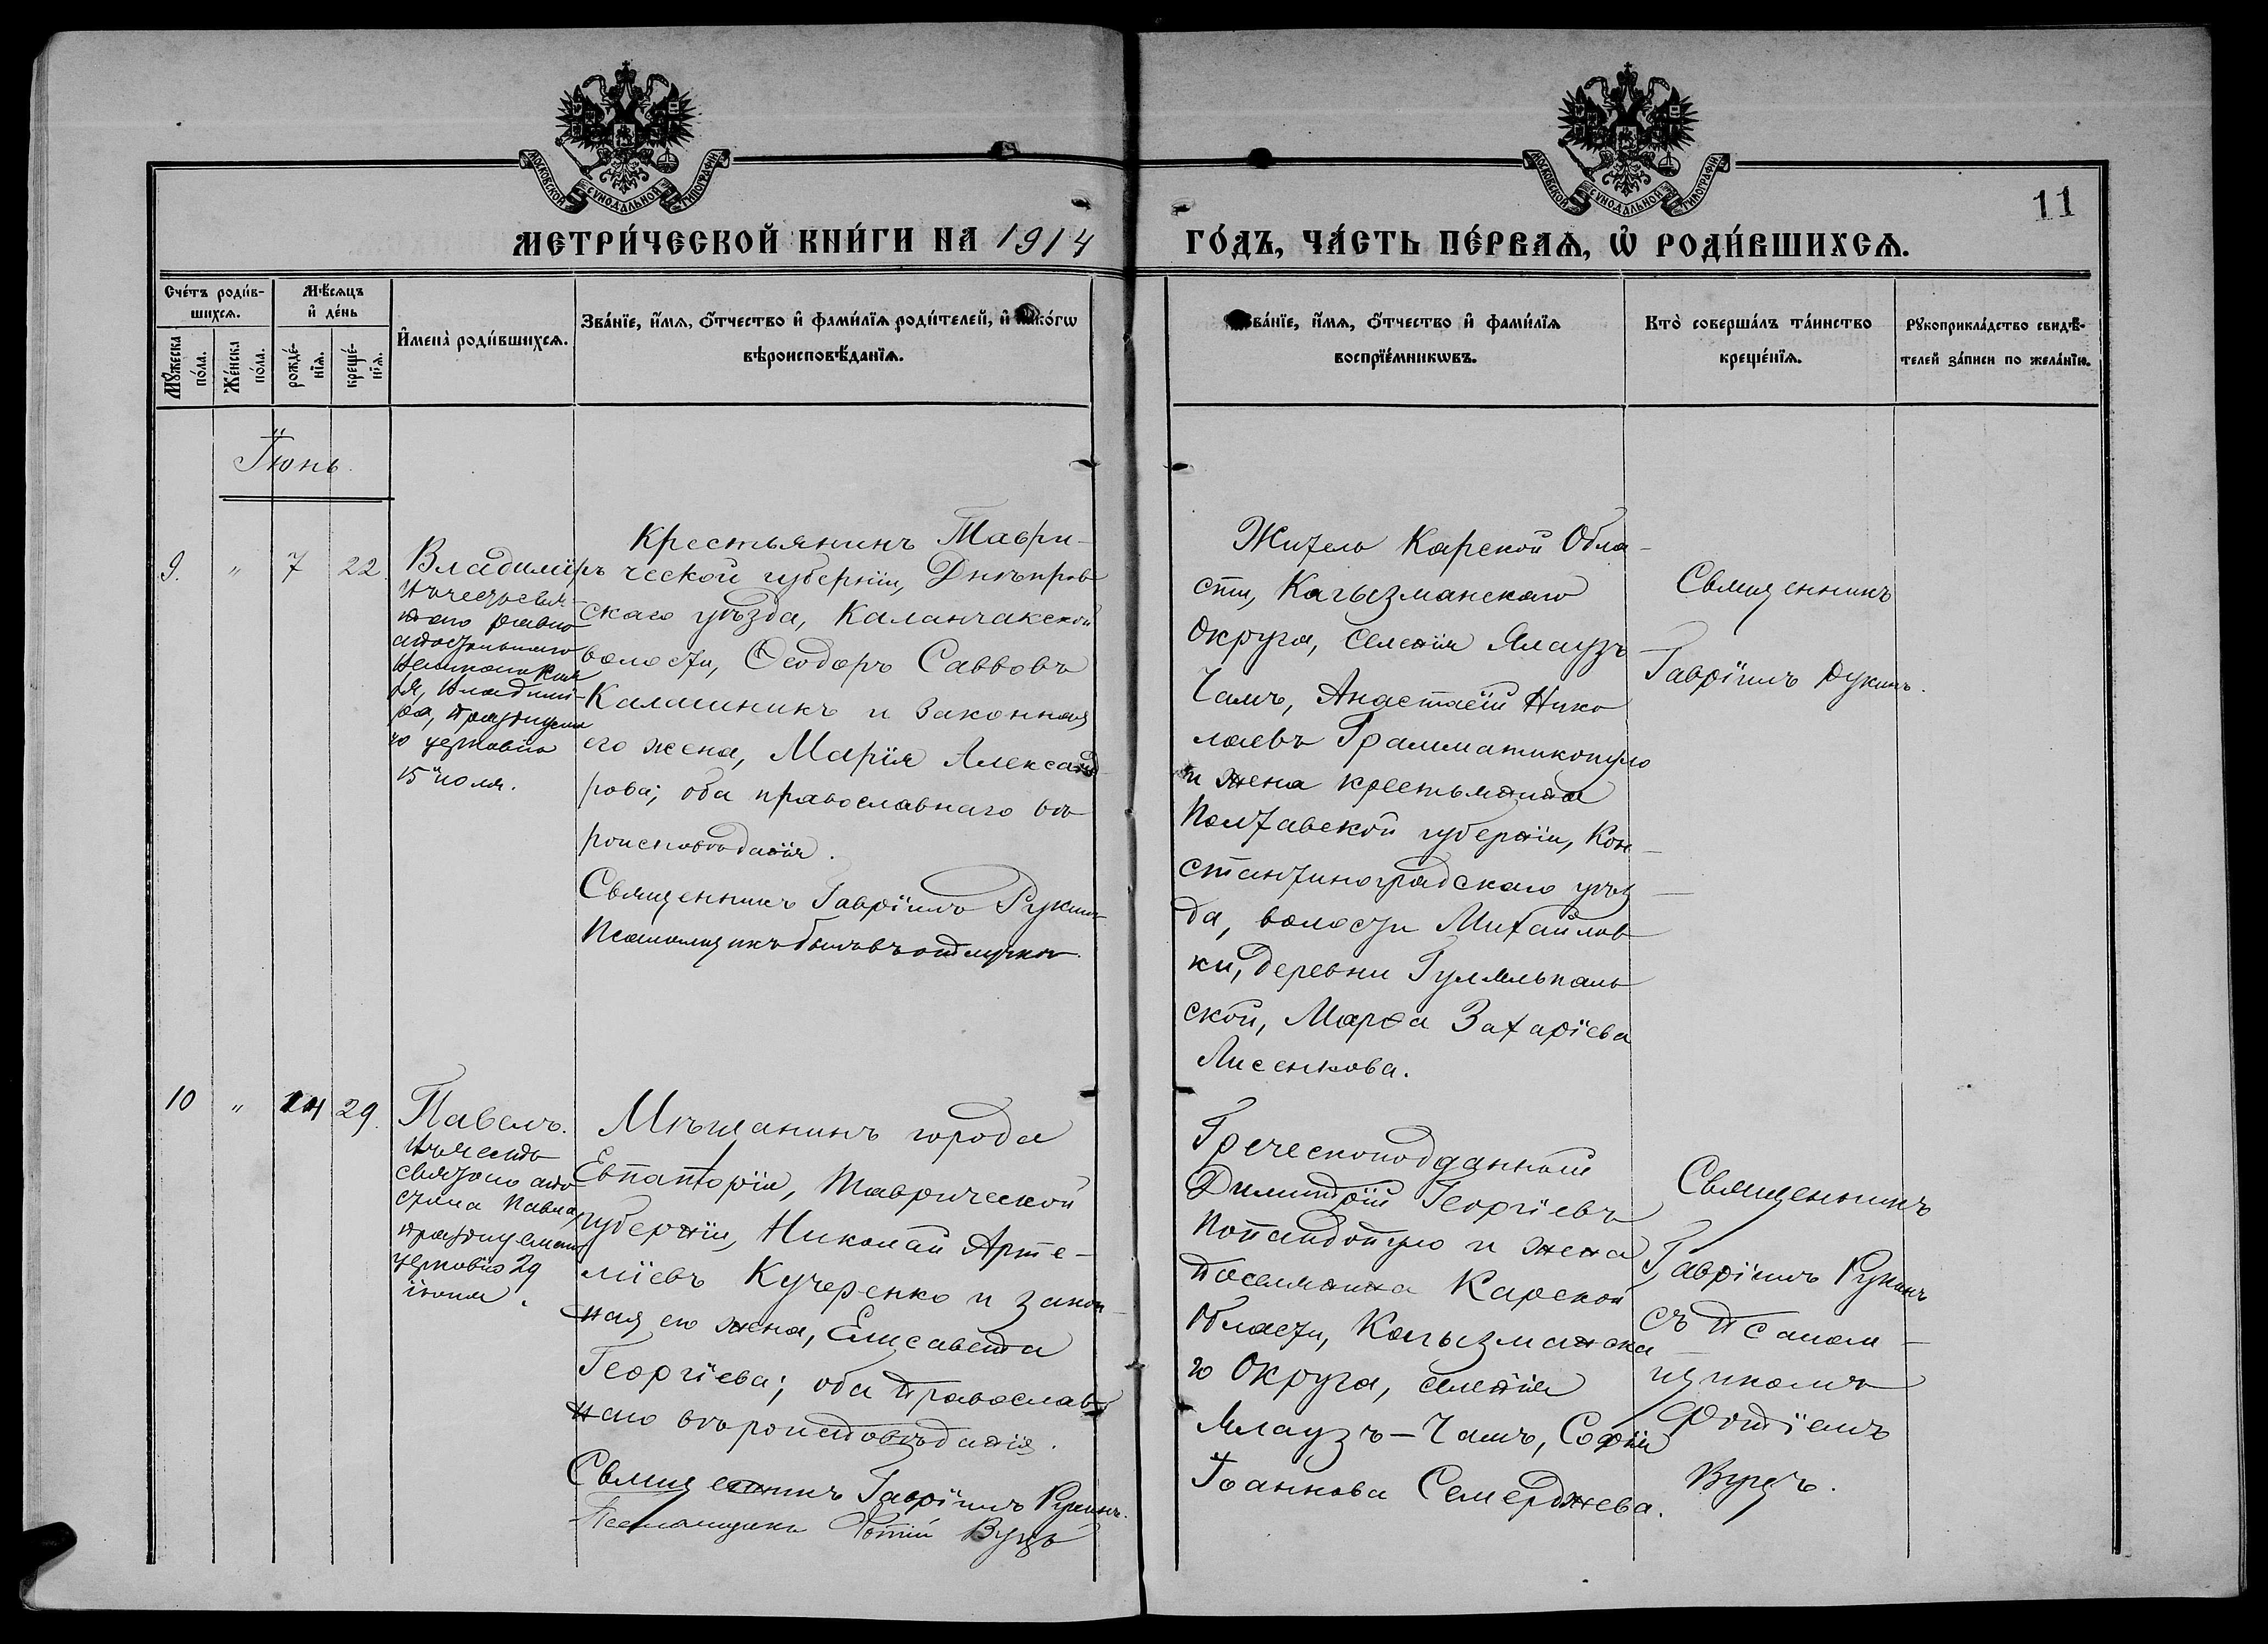 МОСКОВСКОЙ СѴНОДАЛЬНОЙ ТИПОГРАФІИ
МОСКОВСКОЙ СѴНОДАЛЬНОЙ ТИПОГРАФІИ
11
МЕТРИ́ЧЕСКОЙ КНИ́ГИ НА 1914
ГО́ДЪ, ЧА́СТЬ ПЕ́РВАѦ, Ѡ҆ РОДИ́ВШИХСѦ.
Сче́тъ роди́в-
шихсѧ.
Мꙋ́жеска
по́ла.
Же́нска
по́ла.
Мѣ́сѧцъ
и҆ де́нь
рожде́-
нїѧ.
креще́-
нїѧ.
И҆мена̀ роди́вшихсѧ.
Зва́нїе, и҆́мѧ, ѻ҆́тчество и҆ фамѝлїѧ роди́телей, и҆ како́гѡ
вѣроисповѣ́данїѧ.
Зва́нїе, и҆́мѧ, ѻ҆́тчество и҆ фамѝлїѧ
воспрїе́мникѡвъ.
Кто̀ соверша́лъ та́инство
креще́нїѧ.
Рꙋкоприкла́дство свидѣ́-
телей за́писи по жела́нїю.
Іюнь
9. " 7 22.
Владиміръ
въ честь свя-
того равно
апостольнаго
Великаго Кня
зя, Владими-
ра, празднуема
го церковію
15 іюля.
Крестьянинъ Таври-
ческой губерніи, Днѣпров
скаго уѣзда, Каланчакской
волости, Ѳеодоръ Саввовъ
Калашникъ и законная
его жена, Марія Александ
рова; оба православнаго вѣ
роисповѣданія.
Священникъ Гавріилъ Рукинъ
Псаломщикъ былъ въ отлучкѣ.
Житель Карской Обла-
сти, Кагызманскаго
Округа, селенія Ялаузъ-
Чамъ, Анастасій Нико
лаевъ Грамматикопуло
и жена крестьянина
Полтавской губерніи, Кон-
стантиноградскаго уѣз-
да, волости Михайлов
ки, деревни
ской, Марѳа Захаріева
Лисенкова.
Священникъ
Гавріилъ Рукинъ.
10 " 24 29.
Павелъ.
въ честь
святого апо
стола Павла,
празднуемаго
церковію 29
іюня.
Мѣщанинъ города
Евпаторіи, Таврической
губерніи, Николай Арте-
міевъ Кучеренко и закон-
ная его жена, Елисавета
Георгіева; оба православ
наго вѣроисповѣданія.
Священникъ Гавріилъ Рукинъ.
Псаломщикъ Фотій Вуцъ
Греческоподданный
Димитрій Георгіевъ
Попандопуло и жена
поселянина Карской
Области, Кагызманска
го Округа, селенія
Ялаузъ-Чамъ, Софія
Іоаннова Семерджева.
Священникъ
Гавріилъ Рукинъ
съ псалом-
щикомъ
Фотіемъ
Вуцъ.